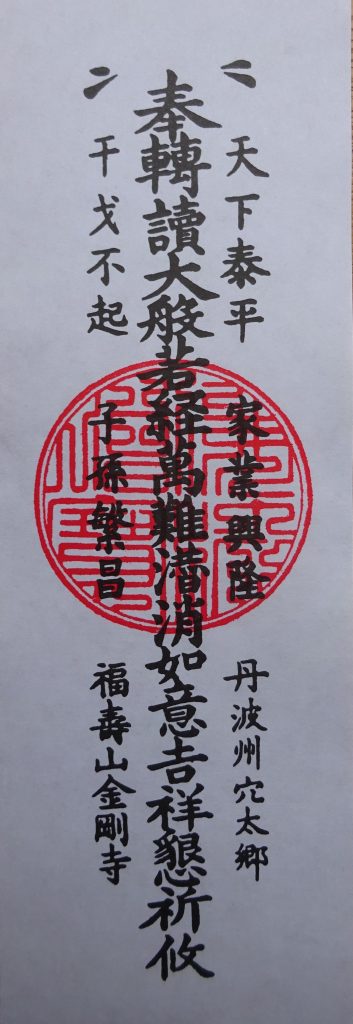 天下泰平 家業興隆 丹波州穴太郷
奉轉讀大般若経萬難潜消如意吉祥懇祈攸
干戈不起 子孫繁昌 福壽山金剛寺